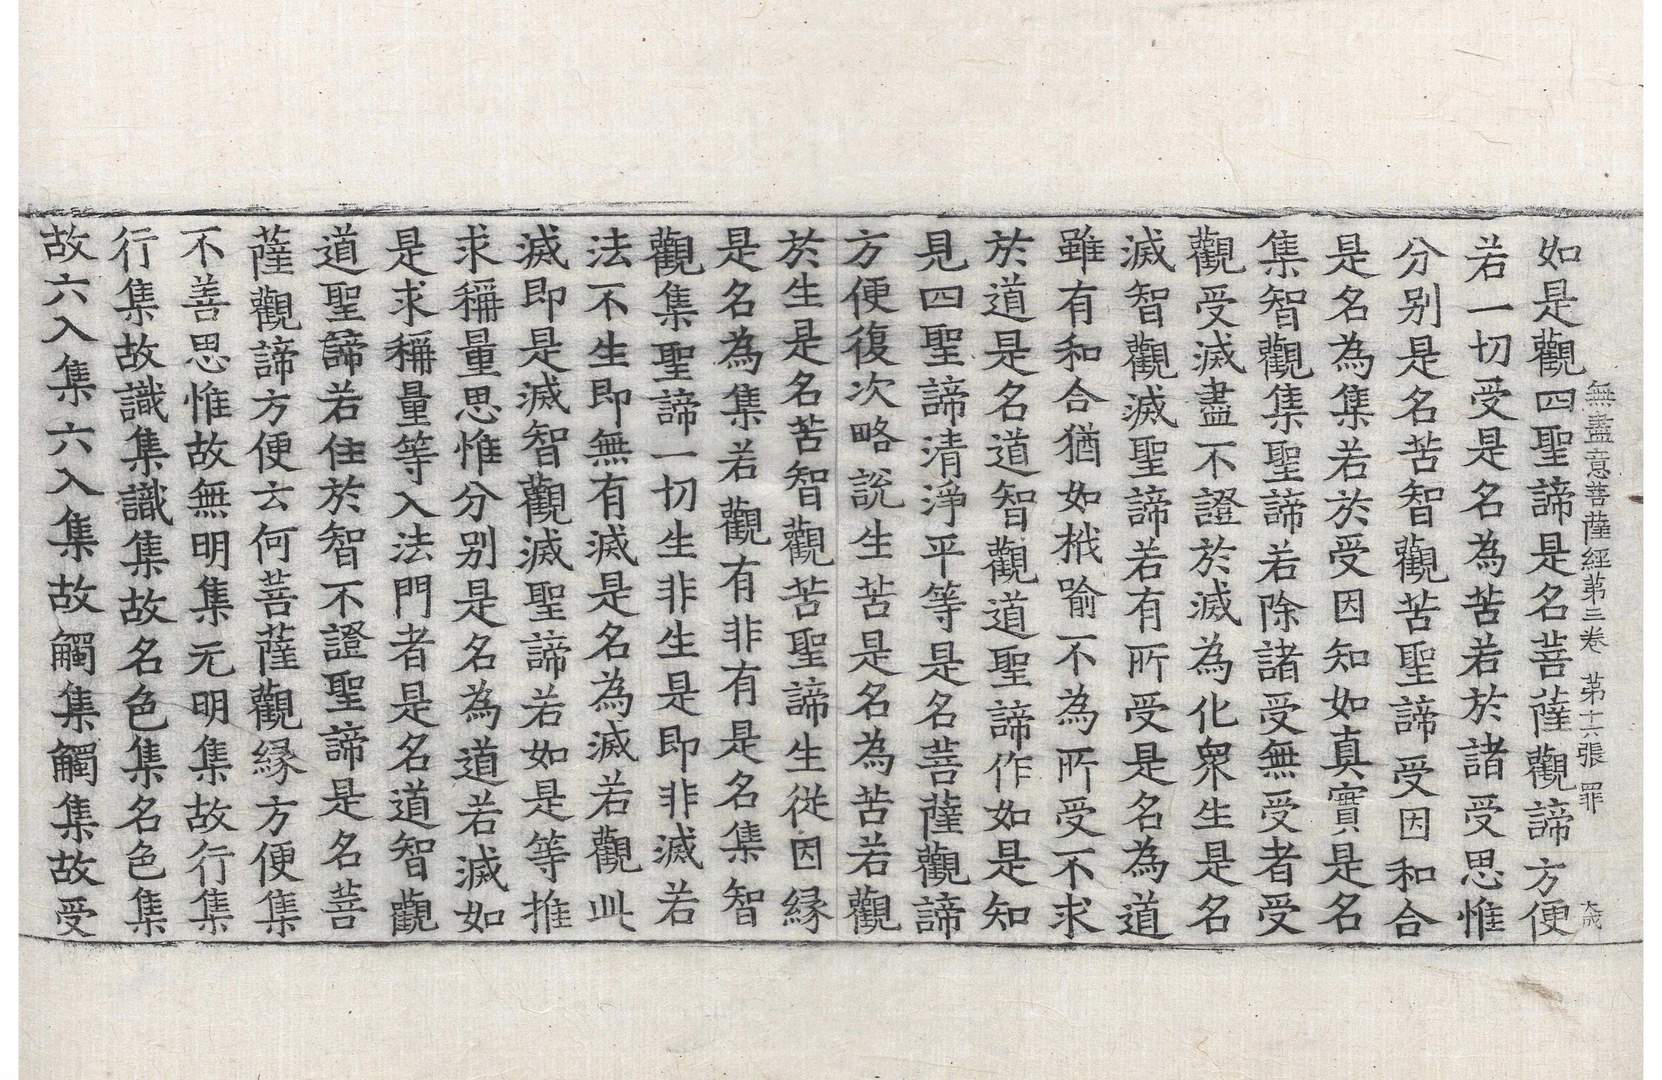 無盡意菩薩經第三卷 第十六張 罪
如是觀四聖諦是名菩薩觀諦方便
若一切受是名為苦若於諸受思惟
分別是名苦智觀苦聖諦受因和合
是名為集若於受因知如真實是名
集智觀集聖諦若除諸受無受者受
觀受滅盡不證於滅為化衆生是名
滅智觀滅聖諦若有所受是名為道
雖有和合猶如栰喻不為所受不求
於道是名道智觀道聖諦作如是知
見四聖諦清淨平等是名菩薩觀諦
方便復次略說生苦是名為苦若觀
於生是名苦智觀苦聖諦生從因緣
是名為集若觀有非有是名集智
觀集聖諦一切生非生是即非滅若
法不生即無有滅是名為滅若觀此
滅即是滅智觀滅聖諦若如是等推
求稱量思惟分別是名為道若滅如
是求稱量等入法門者是名道智觀
道聖諦若住於智不證聖諦是名菩
薩觀諦方便云何菩薩觀緣方便集
不善思惟故無明集无明集故行集
行集故識集識集故名色集名色集
故六入集六入集故觸集觸集故受